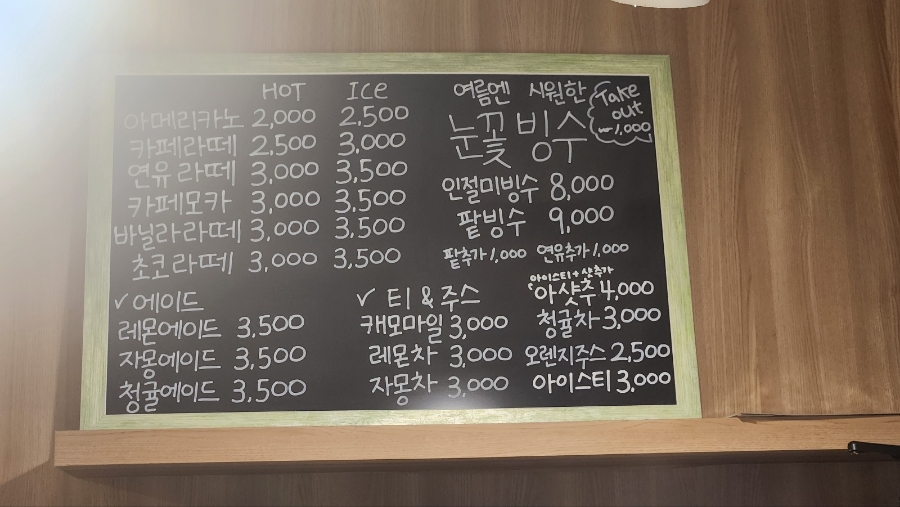 HOT ICE
아메리카노 2,000 2,500
카페라떼 2,500 3,000
연유라떼 3,000 3,500
카페모카 3,000 3,500
바닐라라떼 3,000 3,500
초코라떼 3,000 3,500
여름엔 시원한
눈꽃빙수
Take
out
-1,000
인절미빙수 8,000
팥빙수 9,000
팥추가 1,000 연유추가 1,000
✓에이드
레몬에이드 3,500
자몽에이드 3,500
청귤에이드 3,500
✓ 티 & 주스
캐모마일 3,000
레몬차 3,000
자몽차 3,000
아이스티+샷추가
아샷추 4,000
청귤차 3,000
오렌지주스 2,500
아이스티 3,000